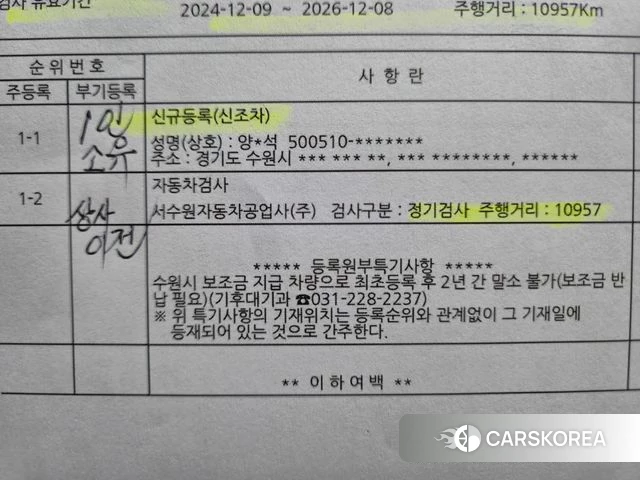 검사 유효기간 2024-12-09 ~ 2026-12-08 주행거리 : 10957Km
순위번호 사 항 란
주등록 부기등록
1-1 1인 소유 신규등록(신조차)
성명(상호) : 양*석 500510-*******
주소 : 경기도 수원시 *** *** **, *** ********, ******
1-2 상사 이전 자동차검사
서수원자동차공업사(주) 검사구분 : 정기검사 주행거리 : 10957
***** 등록원부특기사항 *****
수원시 보조금 지급 차량으로 최초등록 후 2년 간 말소 불가(보조금 반
납 필요)(기후대기과 ☎031-228-2237)
※ 위 특기사항의 기재위치는 등록순위와 관계없이 그 기재일에
등재되어 있는 것으로 간주한다.
** 이 하 여 백 **
CARSKOREA